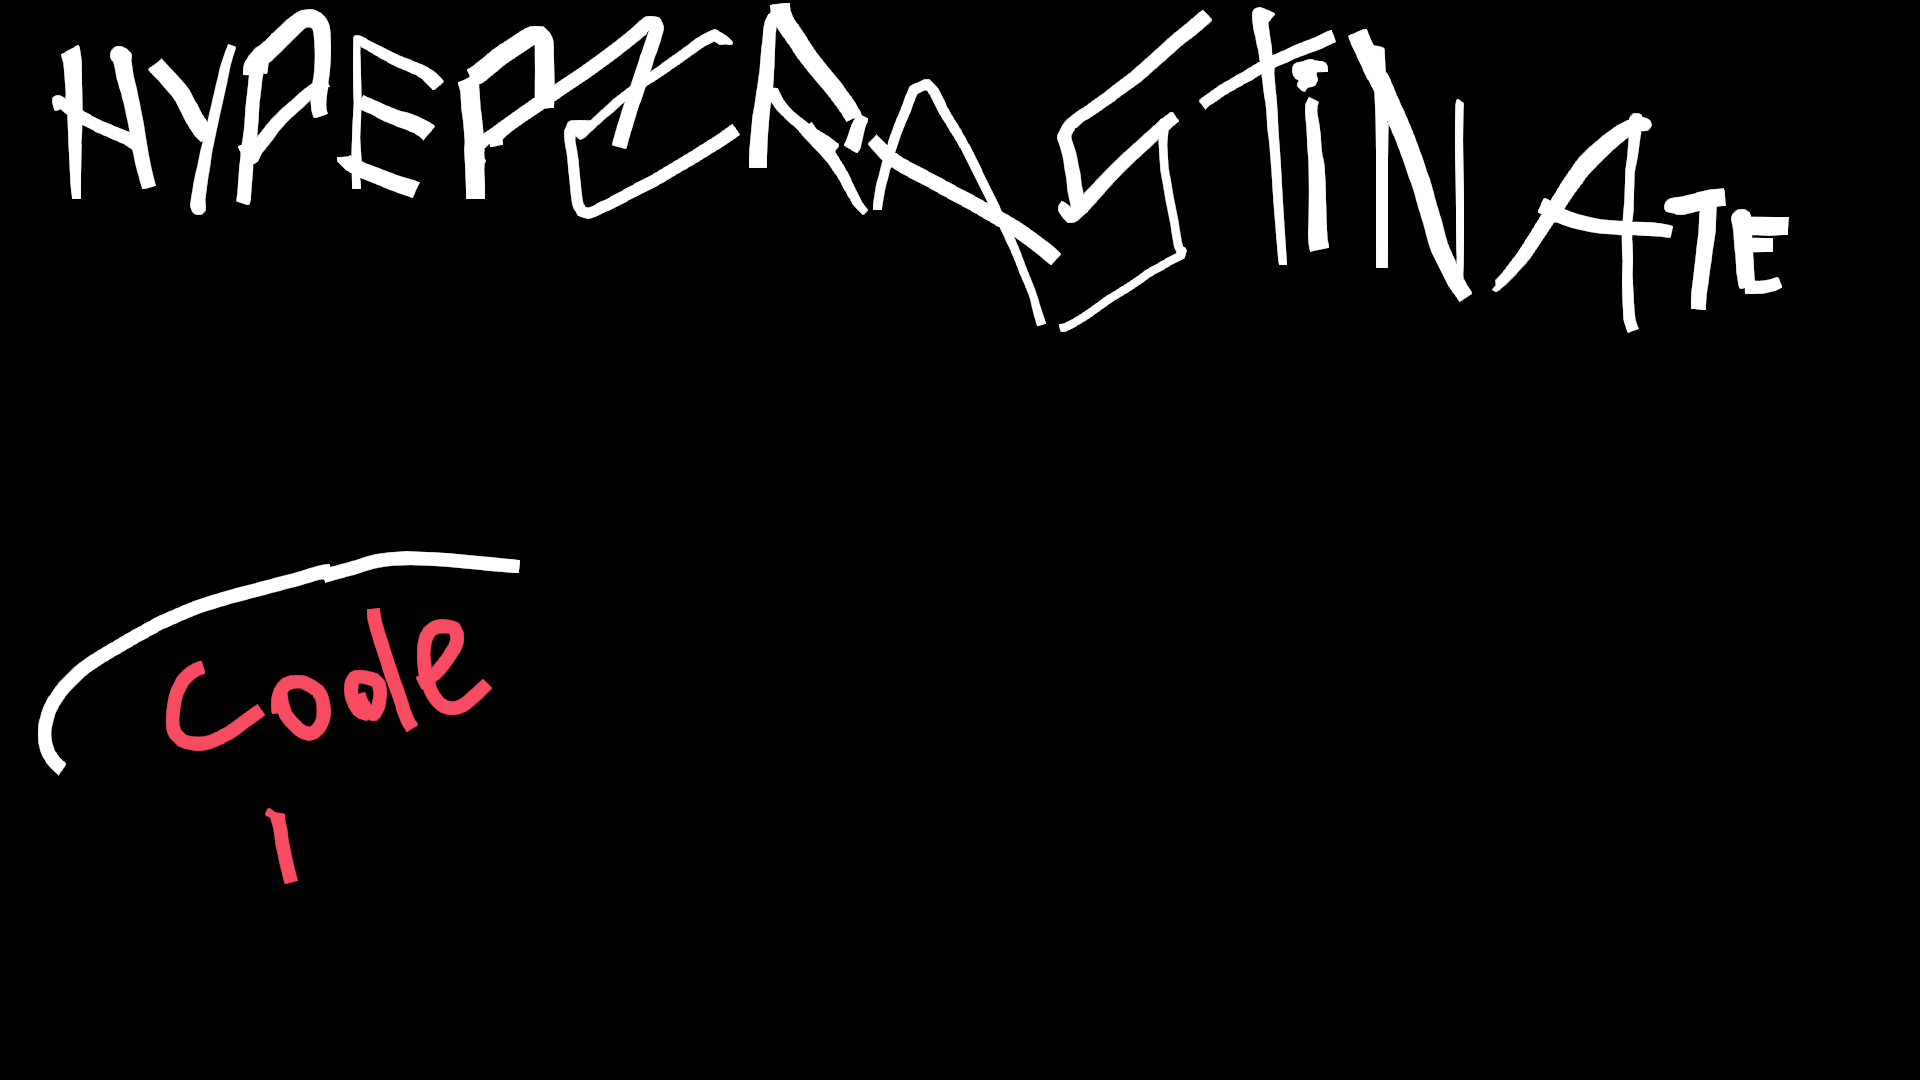 HYPERCRASTiNATE
Code
1